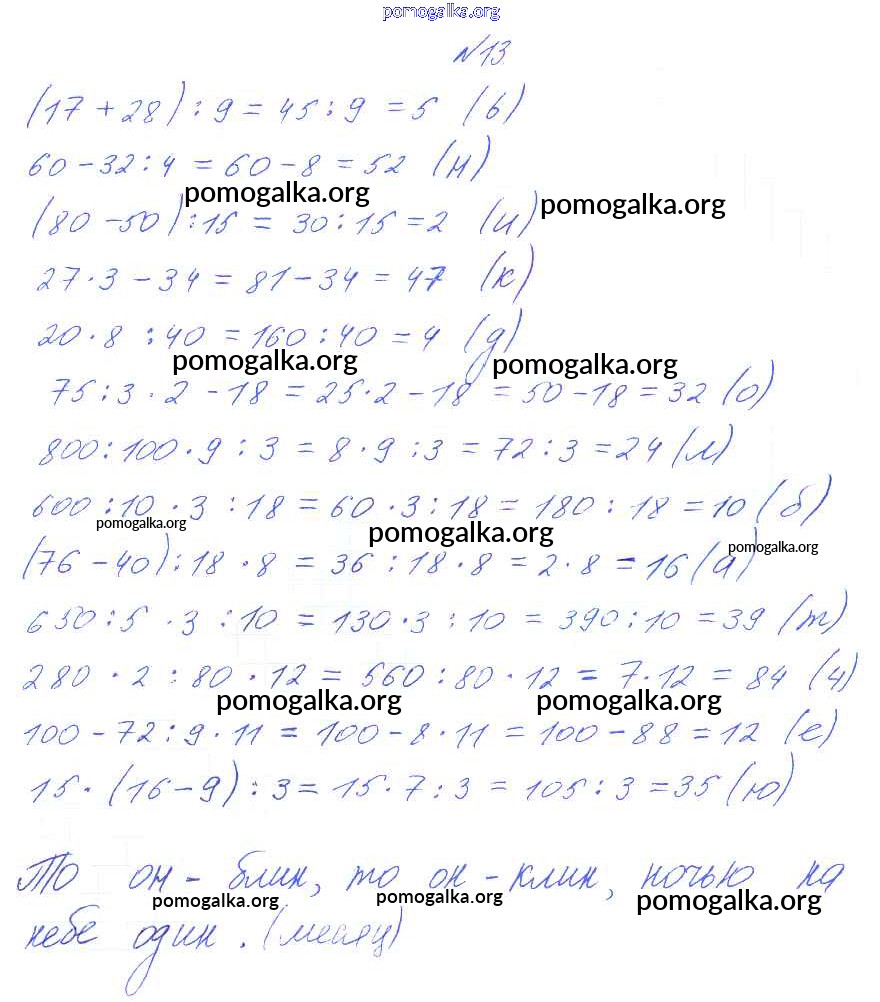 pomogalka.org
№13
(17 + 28) : 9 = 45 : 9 = 5 (ь)
60 - 32 : 4 = 60 - 8 = 52 (н)
pomogalka.org pomogalka.org
(80 - 50) : 15 = 30 : 15 = 2 (и)
27 · 3 - 34 = 81 - 34 = 47 (к)
20 · 8 : 40 = 160 : 40 = 4 (д)
pomogalka.org pomogalka.org
75 : 3 · 2 - 18 = 25 · 2 - 18 = 50 - 18 = 32 (о)
800 : 100 · 9 : 3 = 8 · 9 : 3 = 72 : 3 = 24 (л)
600 : 10 · 3 : 18 = 60 · 3 : 18 = 180 : 18 = 10 (б)
pomogalka.org pomogalka.org pomogalka.org
(76 - 40) : 18 · 8 = 36 : 18 · 8 = 2 · 8 = 16 (а)
650 : 5 · 3 : 10 = 130 · 3 : 10 = 390 : 10 = 39 (т)
280 · 2 : 80 · 12 = 560 : 80 · 12 = 7 · 12 = 84 (ч)
pomogalka.org pomogalka.org
100 - 72 : 9 · 11 = 100 - 8 · 11 = 100 - 88 = 12 (е)
15 · (16 - 9) : 3 = 15 · 7 : 3 = 105 : 3 = 35 (ю)
То он - блин, то он - клин, ночью на
pomogalka.org pomogalka.org pomogalka.org
небе один. (месяц)